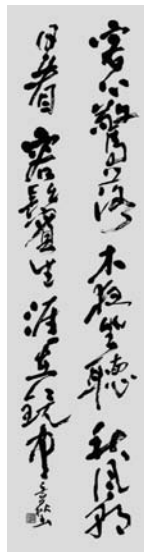 客心驚落木夜坐聽秋風朝
日看容鬢生涯在鏡中